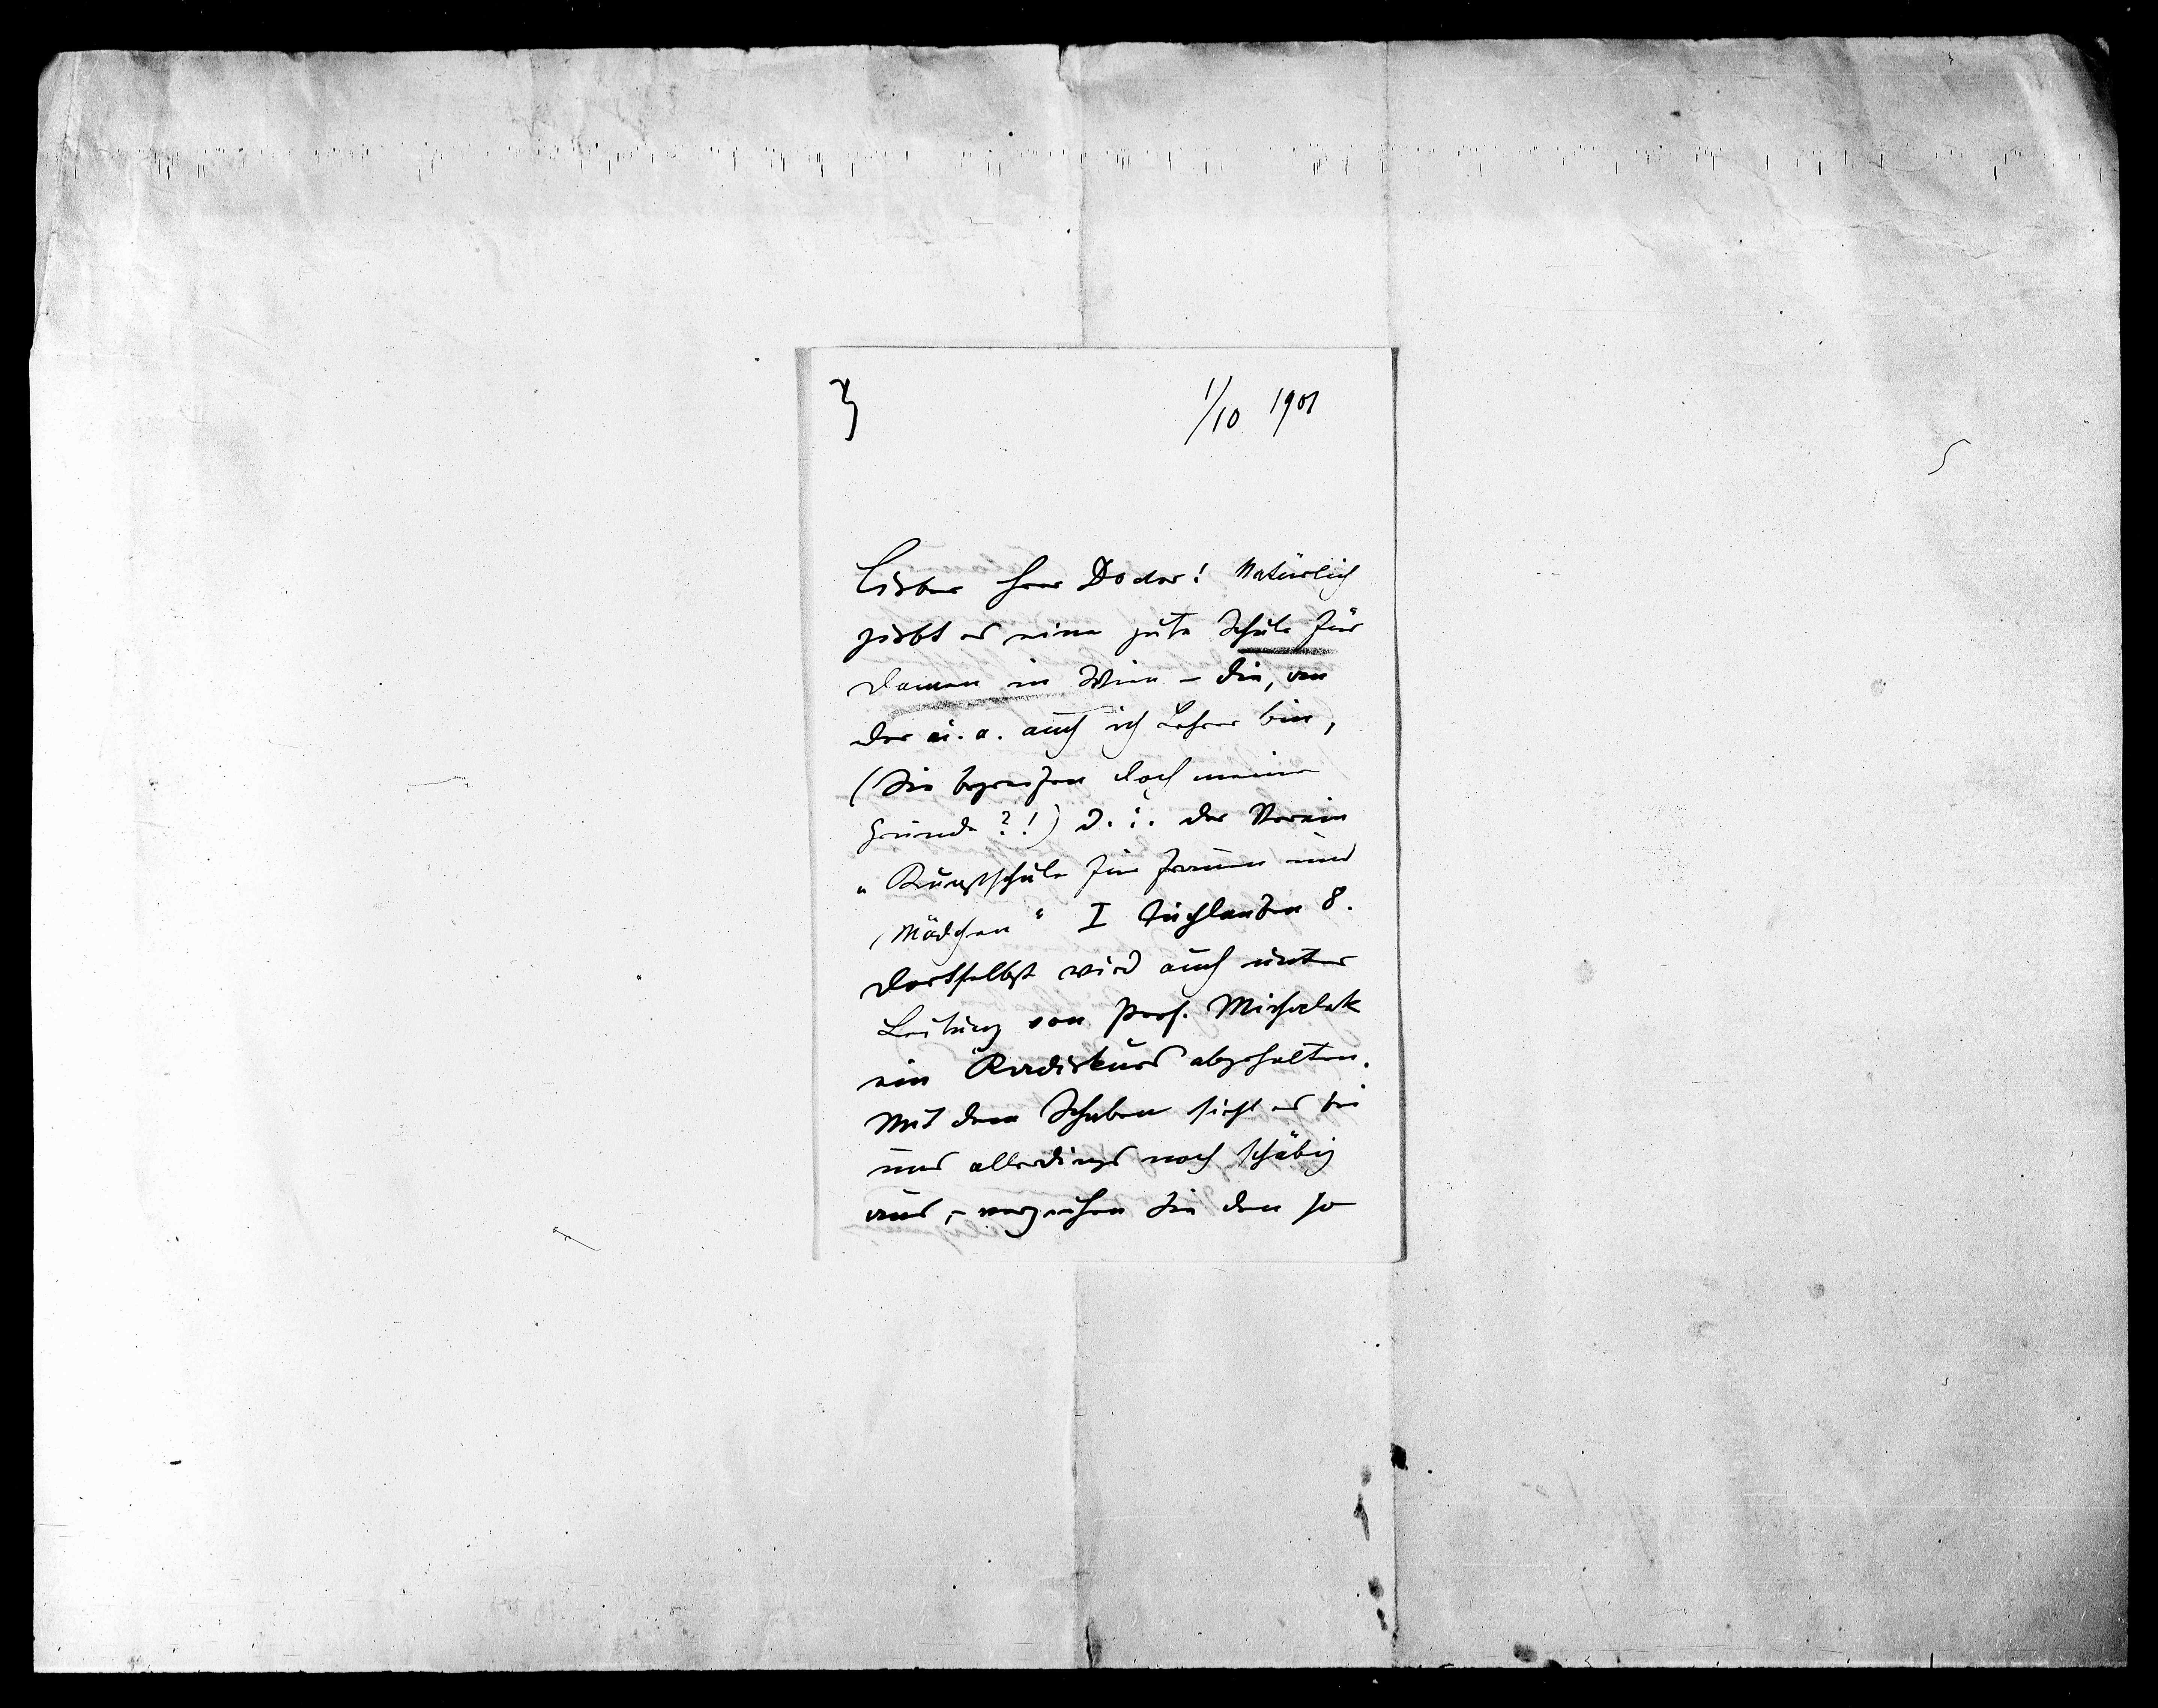 1/10 1901
Lieber Herr Doctor! Natürlich
giebt es eine gute Schule für
Damen in Wien – die, an
der u. a. auch ich Lehrer bin,
(Sie begreifen doch meine
Gründe?!) d. i. der Verein
„Kunstschule für Frauen und
Mädchen“ I Tuchlauben 8.
Dortselbst wird auch unter
Leitung von Prof. Michalek
ein Radirkurs abgehalten.
Mit dem Schaben sieht es bei
uns allerdings noch schäbig
aus, – verzeihen Sie den so